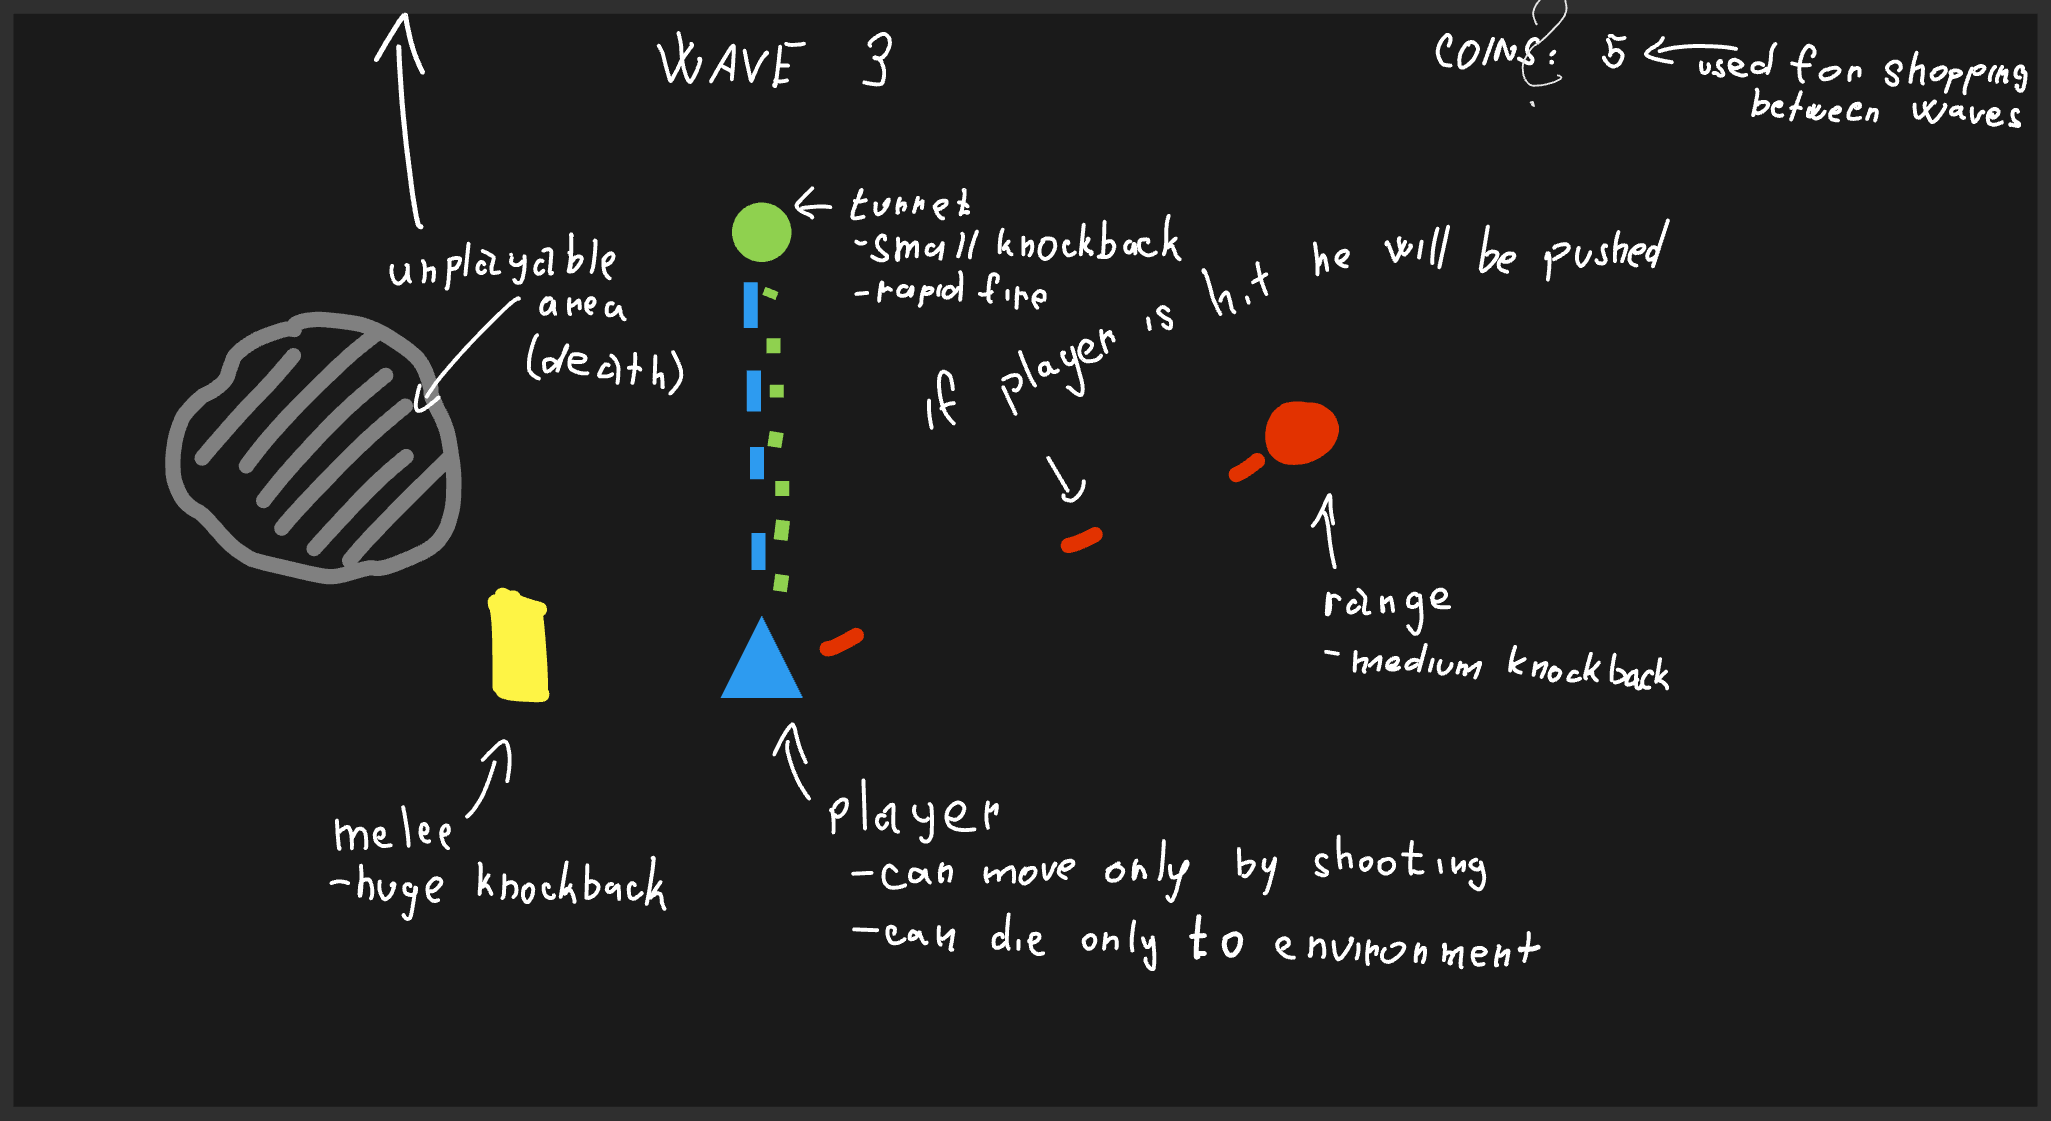 WAVE 3
COINS: 5
used for shopping
between waves
?
turret
-small knockback
-rapid fire
unplayable
area
(death)
if player is hit he will be pushed
range
-medium knockback
melee
-huge knockback
player
-can move only by shooting
-can die only to environment